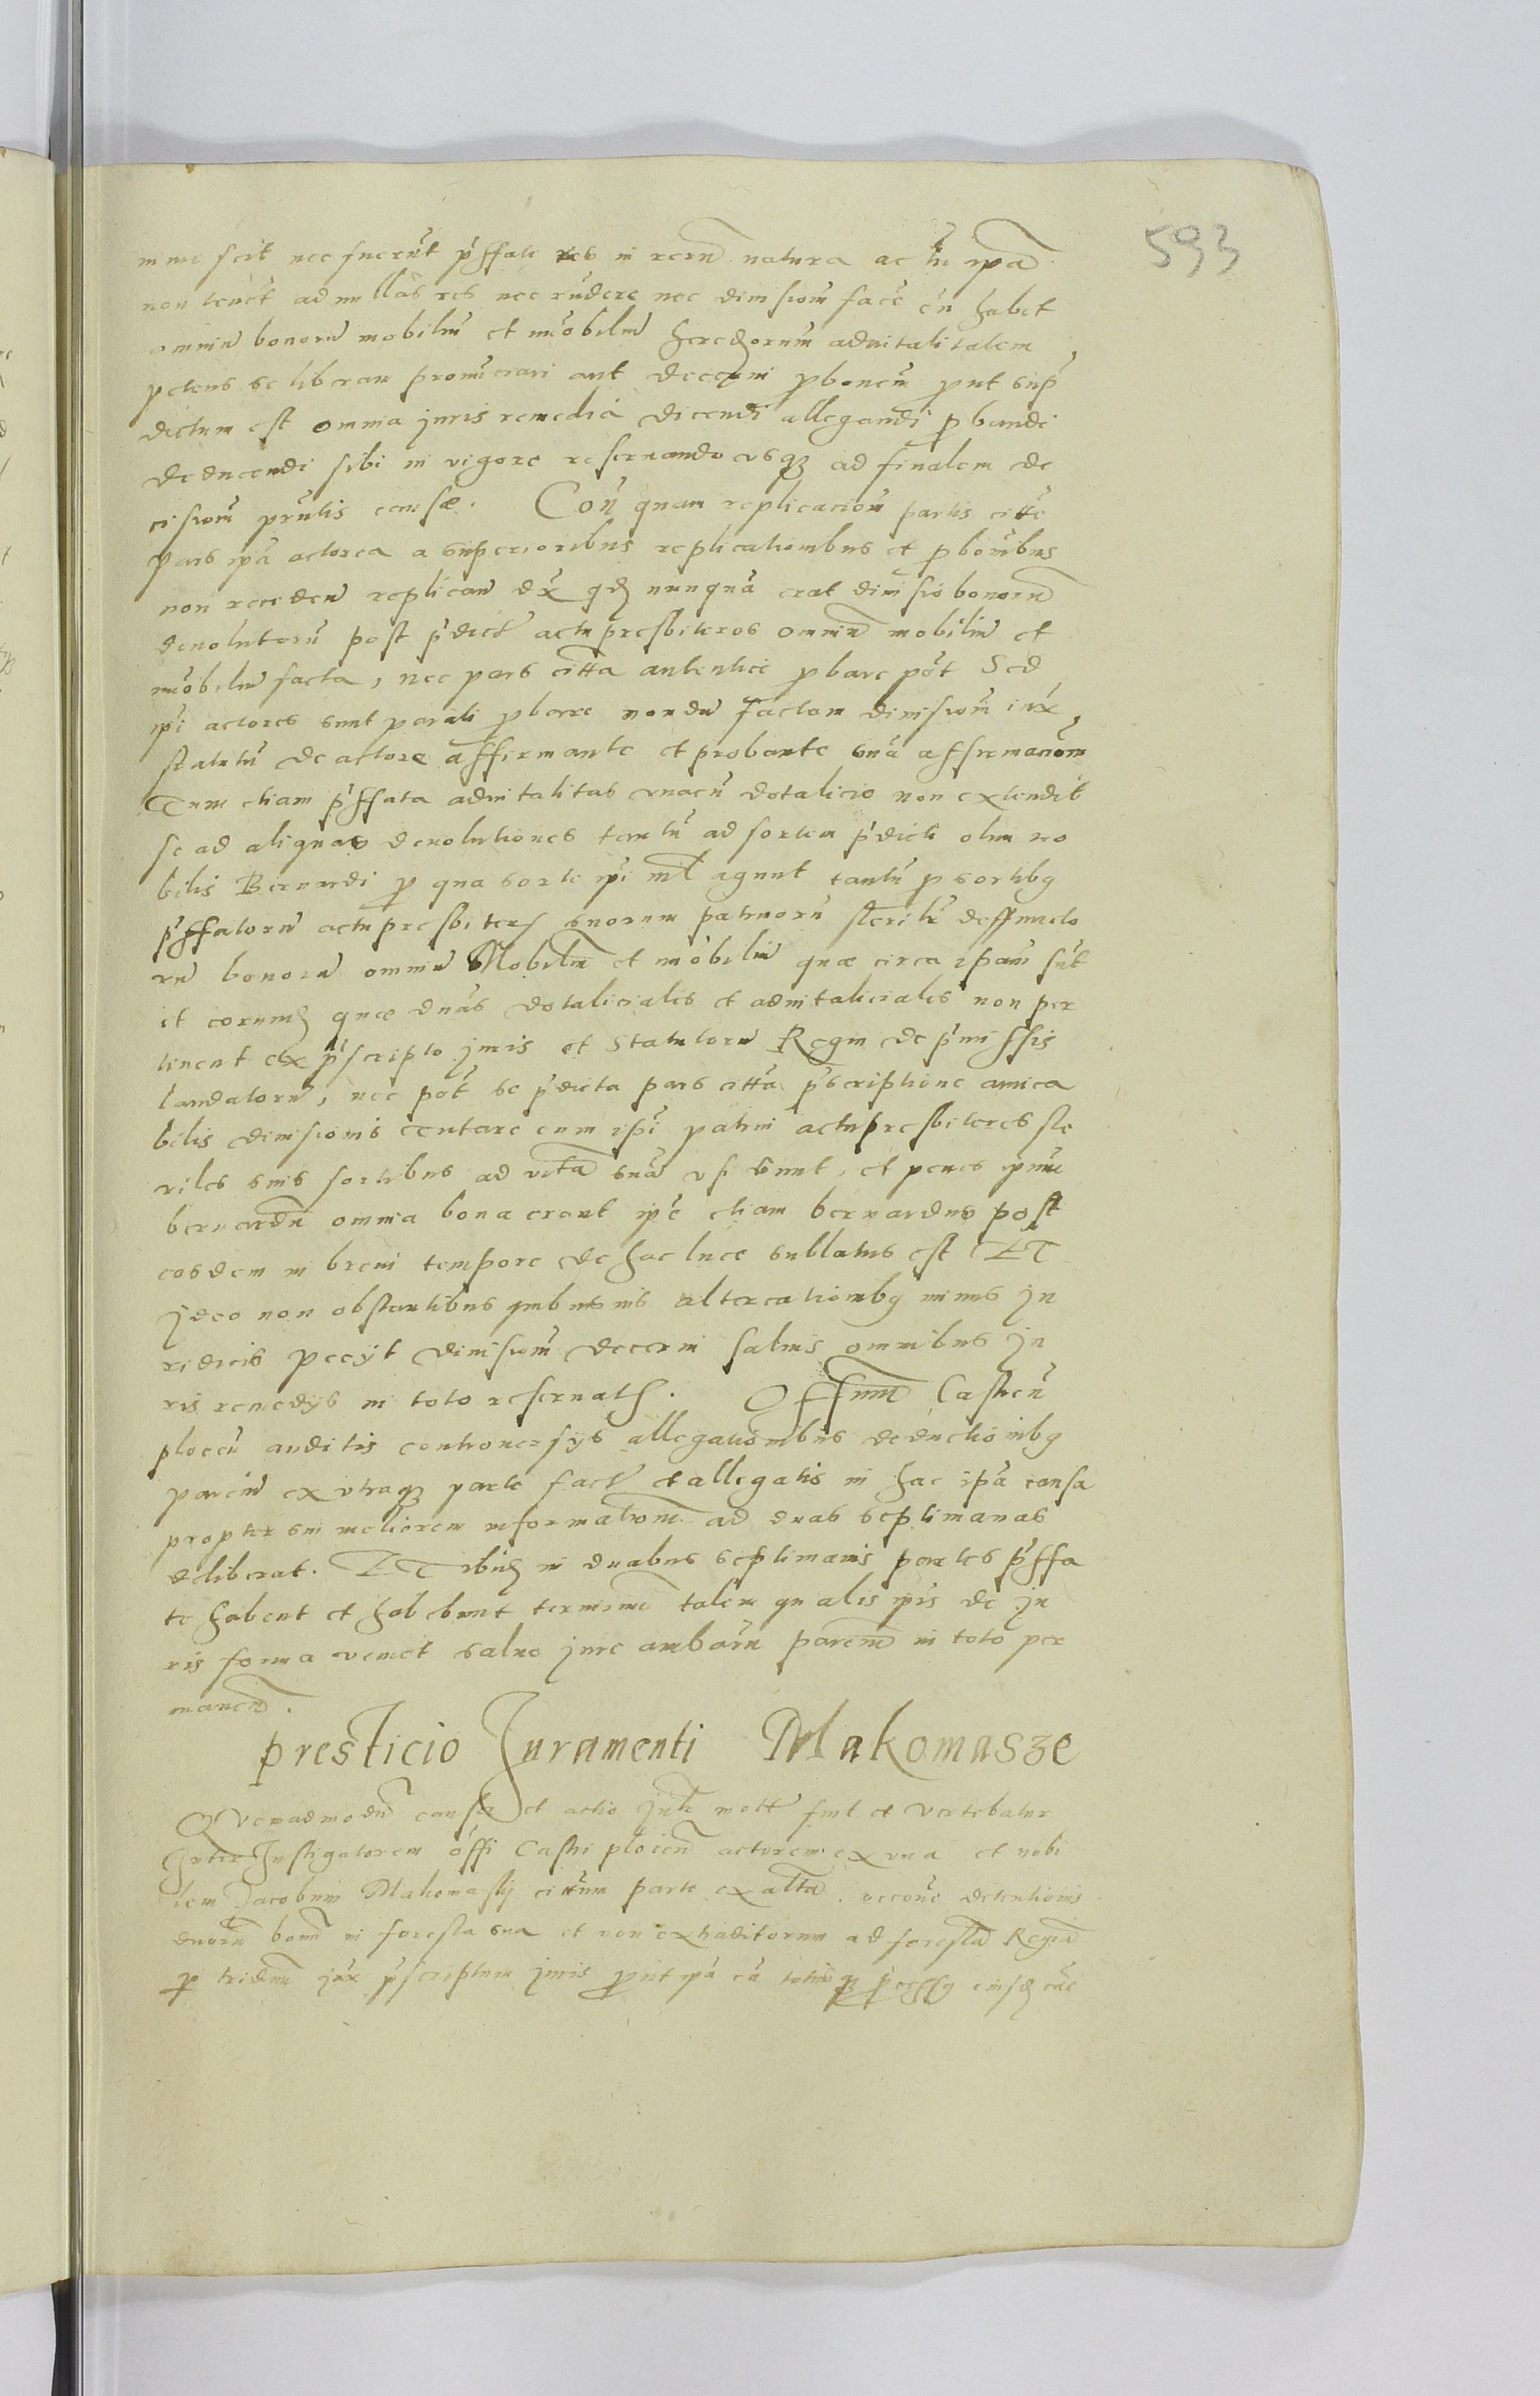 593
nunc scit nec fuerūt p̄ffate res in rerū natura ac tū ipā
non tenet̄ ad nullas res nec rūdere nec diuisionē facē cū habet
omniū bonorū mobiliū et īmobiliū heredorum aduitalitatem
petens se liberam pronūciari aut decerni ꝓbonem̄ ꝓut sup̄
dictum est omnia juris remedia dicendi allegandi ꝓbandi
deducendi sibi in vigore reseruando vsqꝫ ad finalem de
cisionē pn̄tis causæ. Con̄ quam replicacionē partis citte
Pars ipā actorea a superioribus replicationibus et ꝓbonibus
non recedeñ replicañ dx̄ qđ nunquā erat diuisio bonorū
deuolutorū post p̄dict actu presbiteros omniū mobiliū et
īmobiliū facta, nec pars citta autentice ꝓbare pōt Sed
ipī actores sunt parati ꝓbare nondū factam diuisionē iux
statutū de actore affirmante et probante suā affirmacionem
Tum etiam p̄ffata aduitalitas vnacū dotalicio non extendit
se ad aliquas deuolutiones tantū ad sortem p̄dicti olim no
bilis Bernardi ꝓ qua sorte ipī nl̄ agunt tantū ꝓ sortibꝫ
p̄ffatorū actu presbiterꝝ suorum patruorū sterilr̄ deffuncto
rū bonorū omniū Mobiliū et īmobiliū quæ circa ipam sūt
et eorumđ quæ duas dotaliciales et aduitaliciales non per
tinent ex p̄scripto juris et Statutorū Regni de p̄missis
laudatorū, nec pōt se p̄dicta pars citta p̄scriptione amica
bilis diuisionis tutare cum ipī patrui actu presbiteres ste
riles suis sortibus ad vitā suā vsi sunt, et penes ipsum
bernardū omnia bona erant ipē etiam bernardus post
eosdem in breui tempore de hac luce sublatus est ET
Jdeo non obstantibus quibusuis altercationibꝫ minus Ju
ridicis pecijt diuisionē decerni saluis omnibus Ju
ris remedijs in toto reseruatꝭ. Offium Castreñ
ploceñ auditis controuersijs allegationibus deductionibꝫ
parciū ex vtraqꝫ parte fact et allegatis in hac ipā causa
propter sui meliorem informationē ad duas septimanas
deliberat. ET ibiđ in duabus septimanis partes p̄ffa
te habent et habebunt terminū talem qualis ipīs de Ju
ris forma veniet saluo jure ambarū parciū in toto per
maneñ.
presticio Juramenti Makomasze
QVemadmodū causa et actio Jn̄t mott fuit et vertebatur
Inter Instigatorem offi Castri plocen̄ actorem ex vna et nobi
lem Jacobum Makomasky cittum parte ex altā. occone detentionis
duorū boū in foresta sua et non extraditorum ad forestā Regiā
ꝑ triduū jux p̄scriptum juris ꝓut ipā cā totusqꝫ ꝓcessꝫ eiusđ cāe